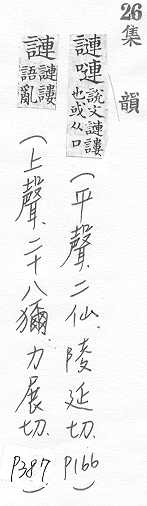 26集韻
謰嗹 說文謰謱也或从口（平聲.二仙.陵延切.P166）
謰 謰謱語亂（上聲.二十八獮.力展切.P387.）